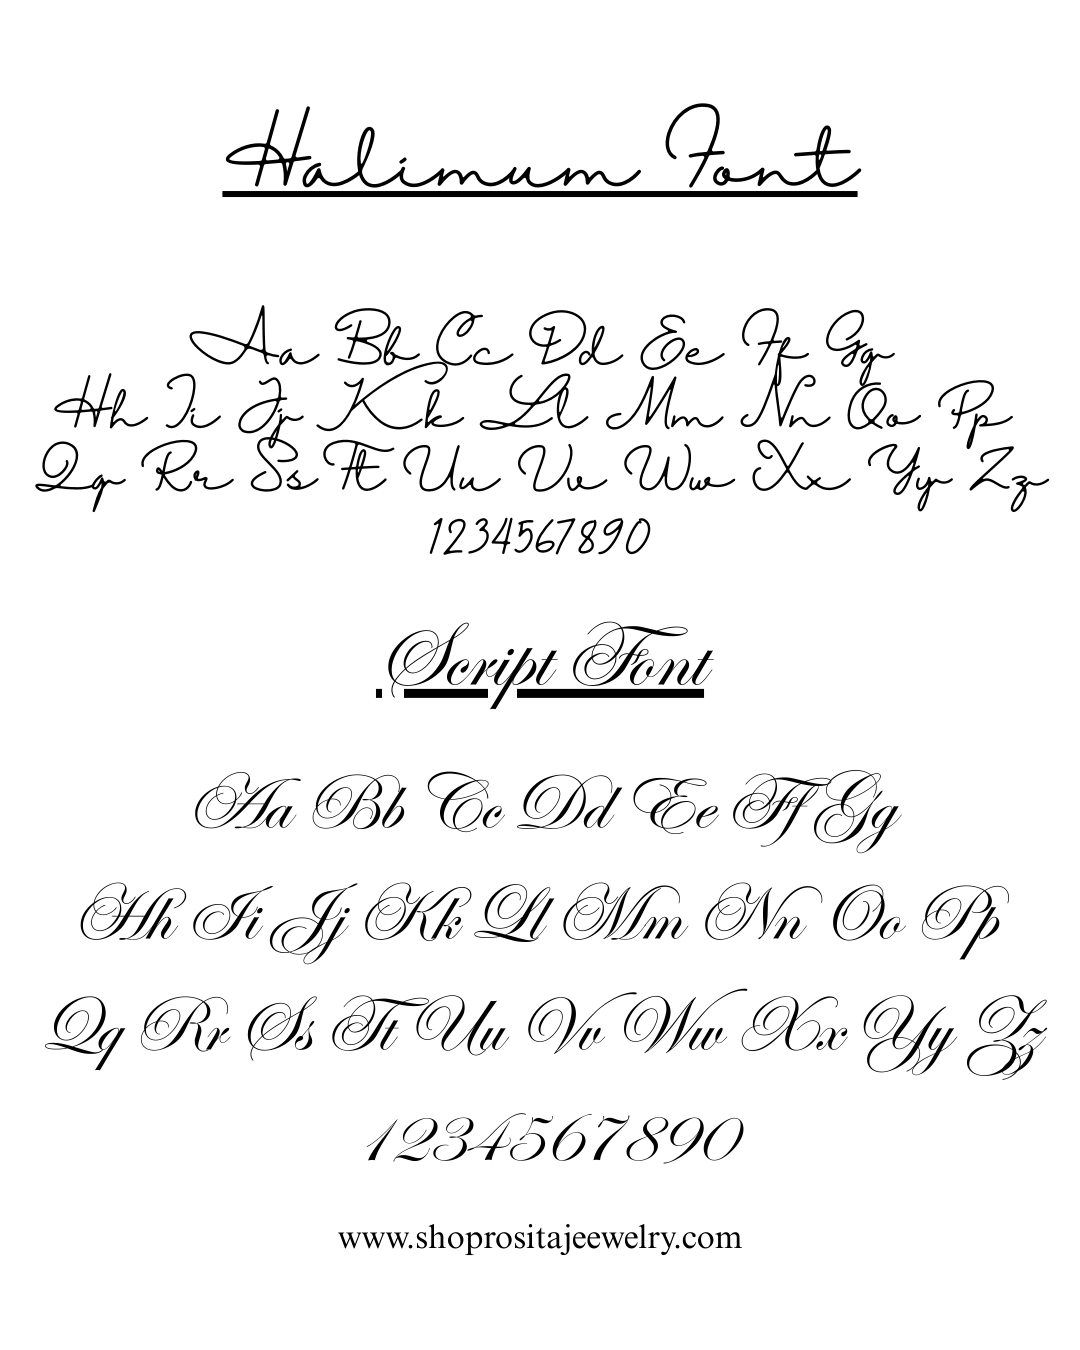 Halimum Font
Aa Bb Cc Dd Ee Ff Gg
Hh Ii Jj Kk Ll Mm Nn Oo Pp
Qq Rr Ss Tt Uu Vv Ww Xx Yy Zz
1234567890
Script Font
Aa Bb Cc Dd Ee Ff Gg
Hh Ii Jj Kk Ll Mm Nn Oo Pp
Qq Rr Ss Tt Uu Vv Ww Xx Yy Zz
1234567890
www.shoprositajeewelry.com